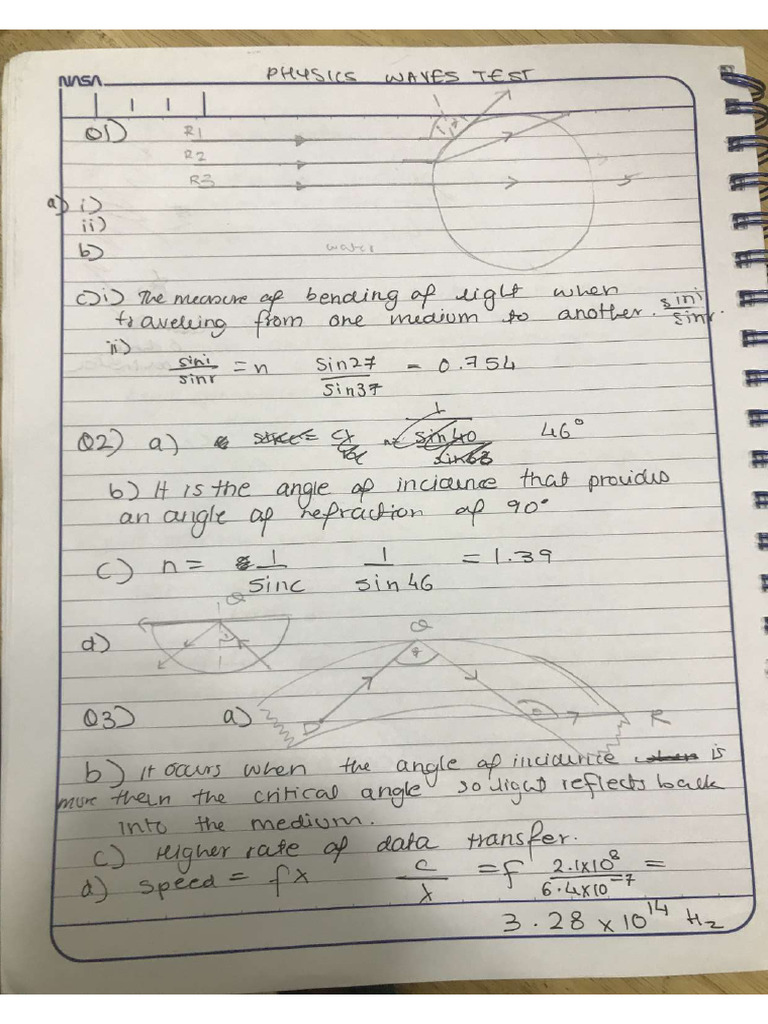 NASA
PHYSICS WAVES TEST
Q1)
R1
R2
R3
a) i)
ii)
b)
water
c) i) The measure of bending of light when
travelling from one medium to another. sin i / sin r.
ii)
sini / sinr = n sin27 / sin37 = 0.754
Q2) a) 1 / sin40 46°
b) It is the angle of incidence that provides
an angle of refraction of 90°
c) n = 1 / sinc 1 / sin46 = 1.39
Q
d)
Q
Q3) a) P R
b) it occurs when the angle of incidence is
more than the critical angle so light reflects back
into the medium.
c) Higher rate of data transfer.
d) speed = fλ c / λ = f 2.1x10^8 / 6.4x10^-7 =
3.28 x 10^14 Hz